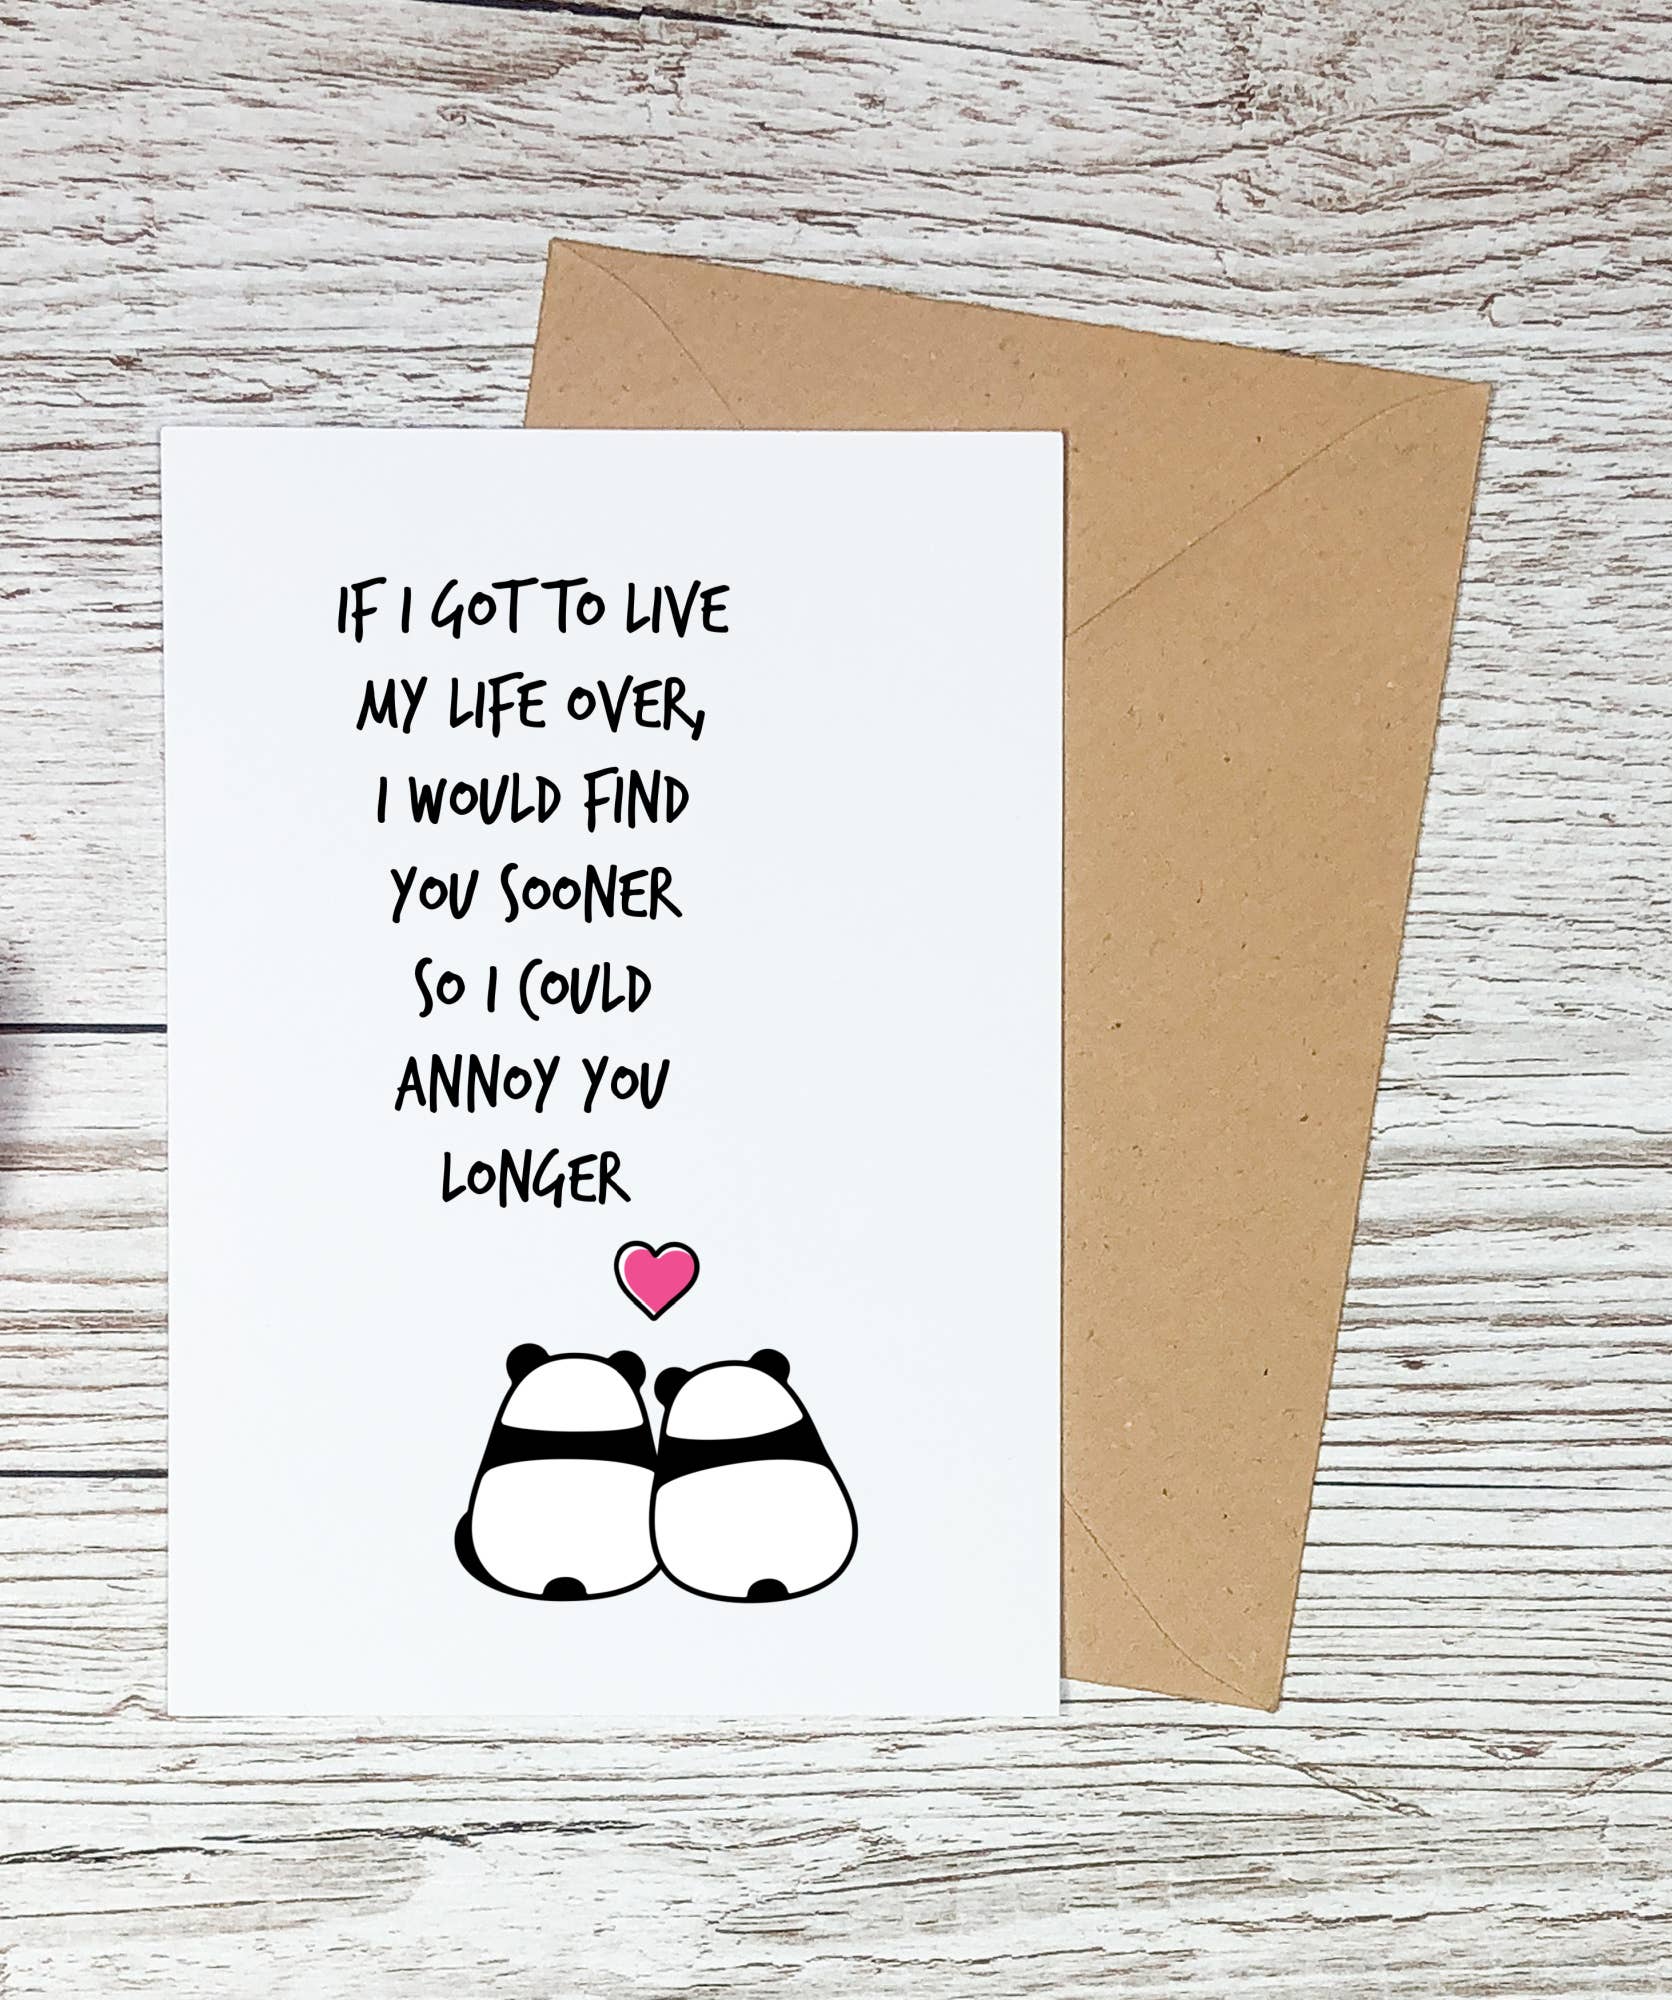 IF I GOT TO LIVE
MY LIFE OVER,
I WOULD FIND
YOU SOONER
SO I COULD
ANNOY YOU
LONGER